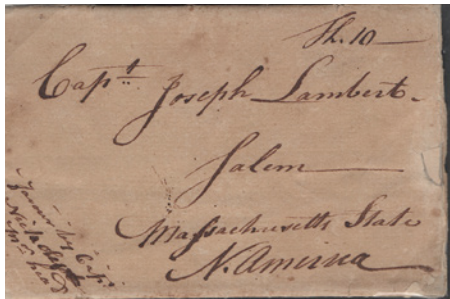 Sh. 10
Capt Joseph Lambert
Salem
Massachusetts State
N. America
by Cap